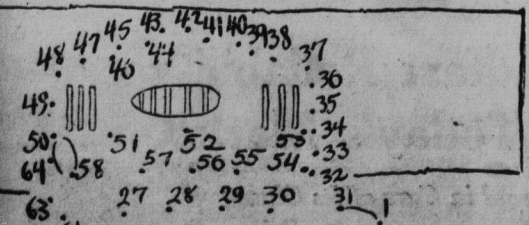 45 43 42 41 40 39 38
48 47 46 44 37
36
49 35
34
50 51 52 53 33
64 58 57 56 55 54 32
63 27 28 29 30 31 1